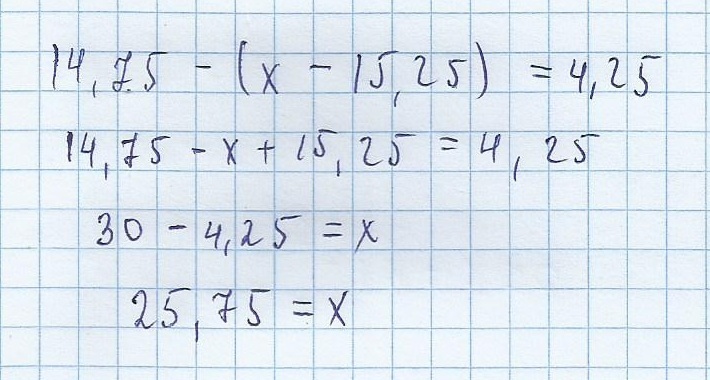 14,75 - (x - 15,25) = 4,25
14,75 - x + 15,25 = 4,25
30 - 4,25 = x
25,75 = x